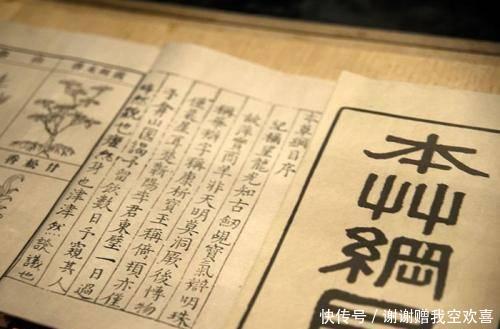 本艸綱
本草綱目序
紀稱望龍光知古劒覘寶氣辯明珠
故萍實商羊非天明莫洞厥後博物
稱華辯字稱康析寶玉稱倚頓亦僅
僅晨星耳楚蘄陽李君東璧一日過
予弇山園謁予留飲數日予窺其人
睟然貌也癯然身也津津然談議也
甘松香
快传号／谢谢赠我空欢喜